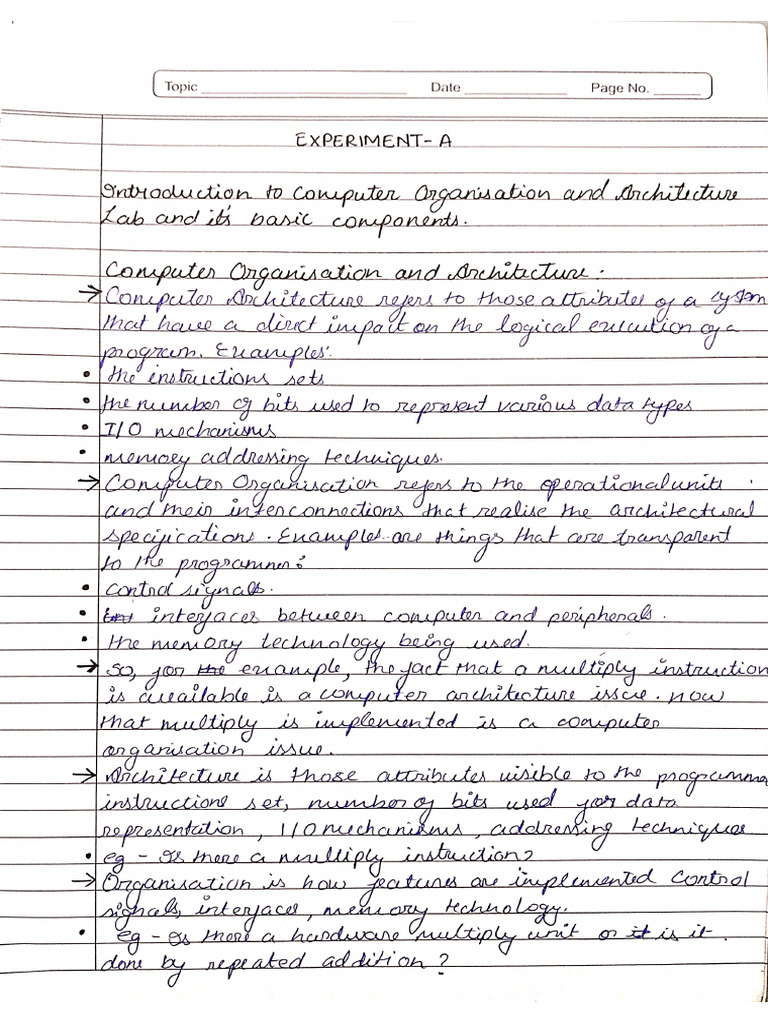 Topic Date Page No.
EXPERIMENT-A
Introduction to Computer Organisation and Architecture
Lab and it's basic components.
Computer Organisation and Architecture:
→ Computer Architecture refers to those attributes of a system
that have a direct impact on the logical execution of a
program. Examples:
• the instructions sets
• the number of bits used to represent various data types
• I/O mechanisms
• memory addressing techniques.
→ Computer Organisation refers to the operational units
and their interconnections that realise the architectural
specifications. Examples are things that are transparent
to the programmer:
• control signals.
• interfaces between computer and peripherals.
• the memory technology being used.
→ So, for the example, the fact that a multiply instruction
is available is a computer architecture issue. How
that multiply is implemented is a computer
organisation issue.
→ Architecture is those attributes visible to the programma
instructions set, number of bits used for data
representation, I/O mechanisms, addressing techniques
• eg - Is there a multiply instruction?
→ Organisation is how features are implemented control
signals, interfaces, memory technology.
• eg - Is there a hardware multiply unit or it is it
done by repeated addition?